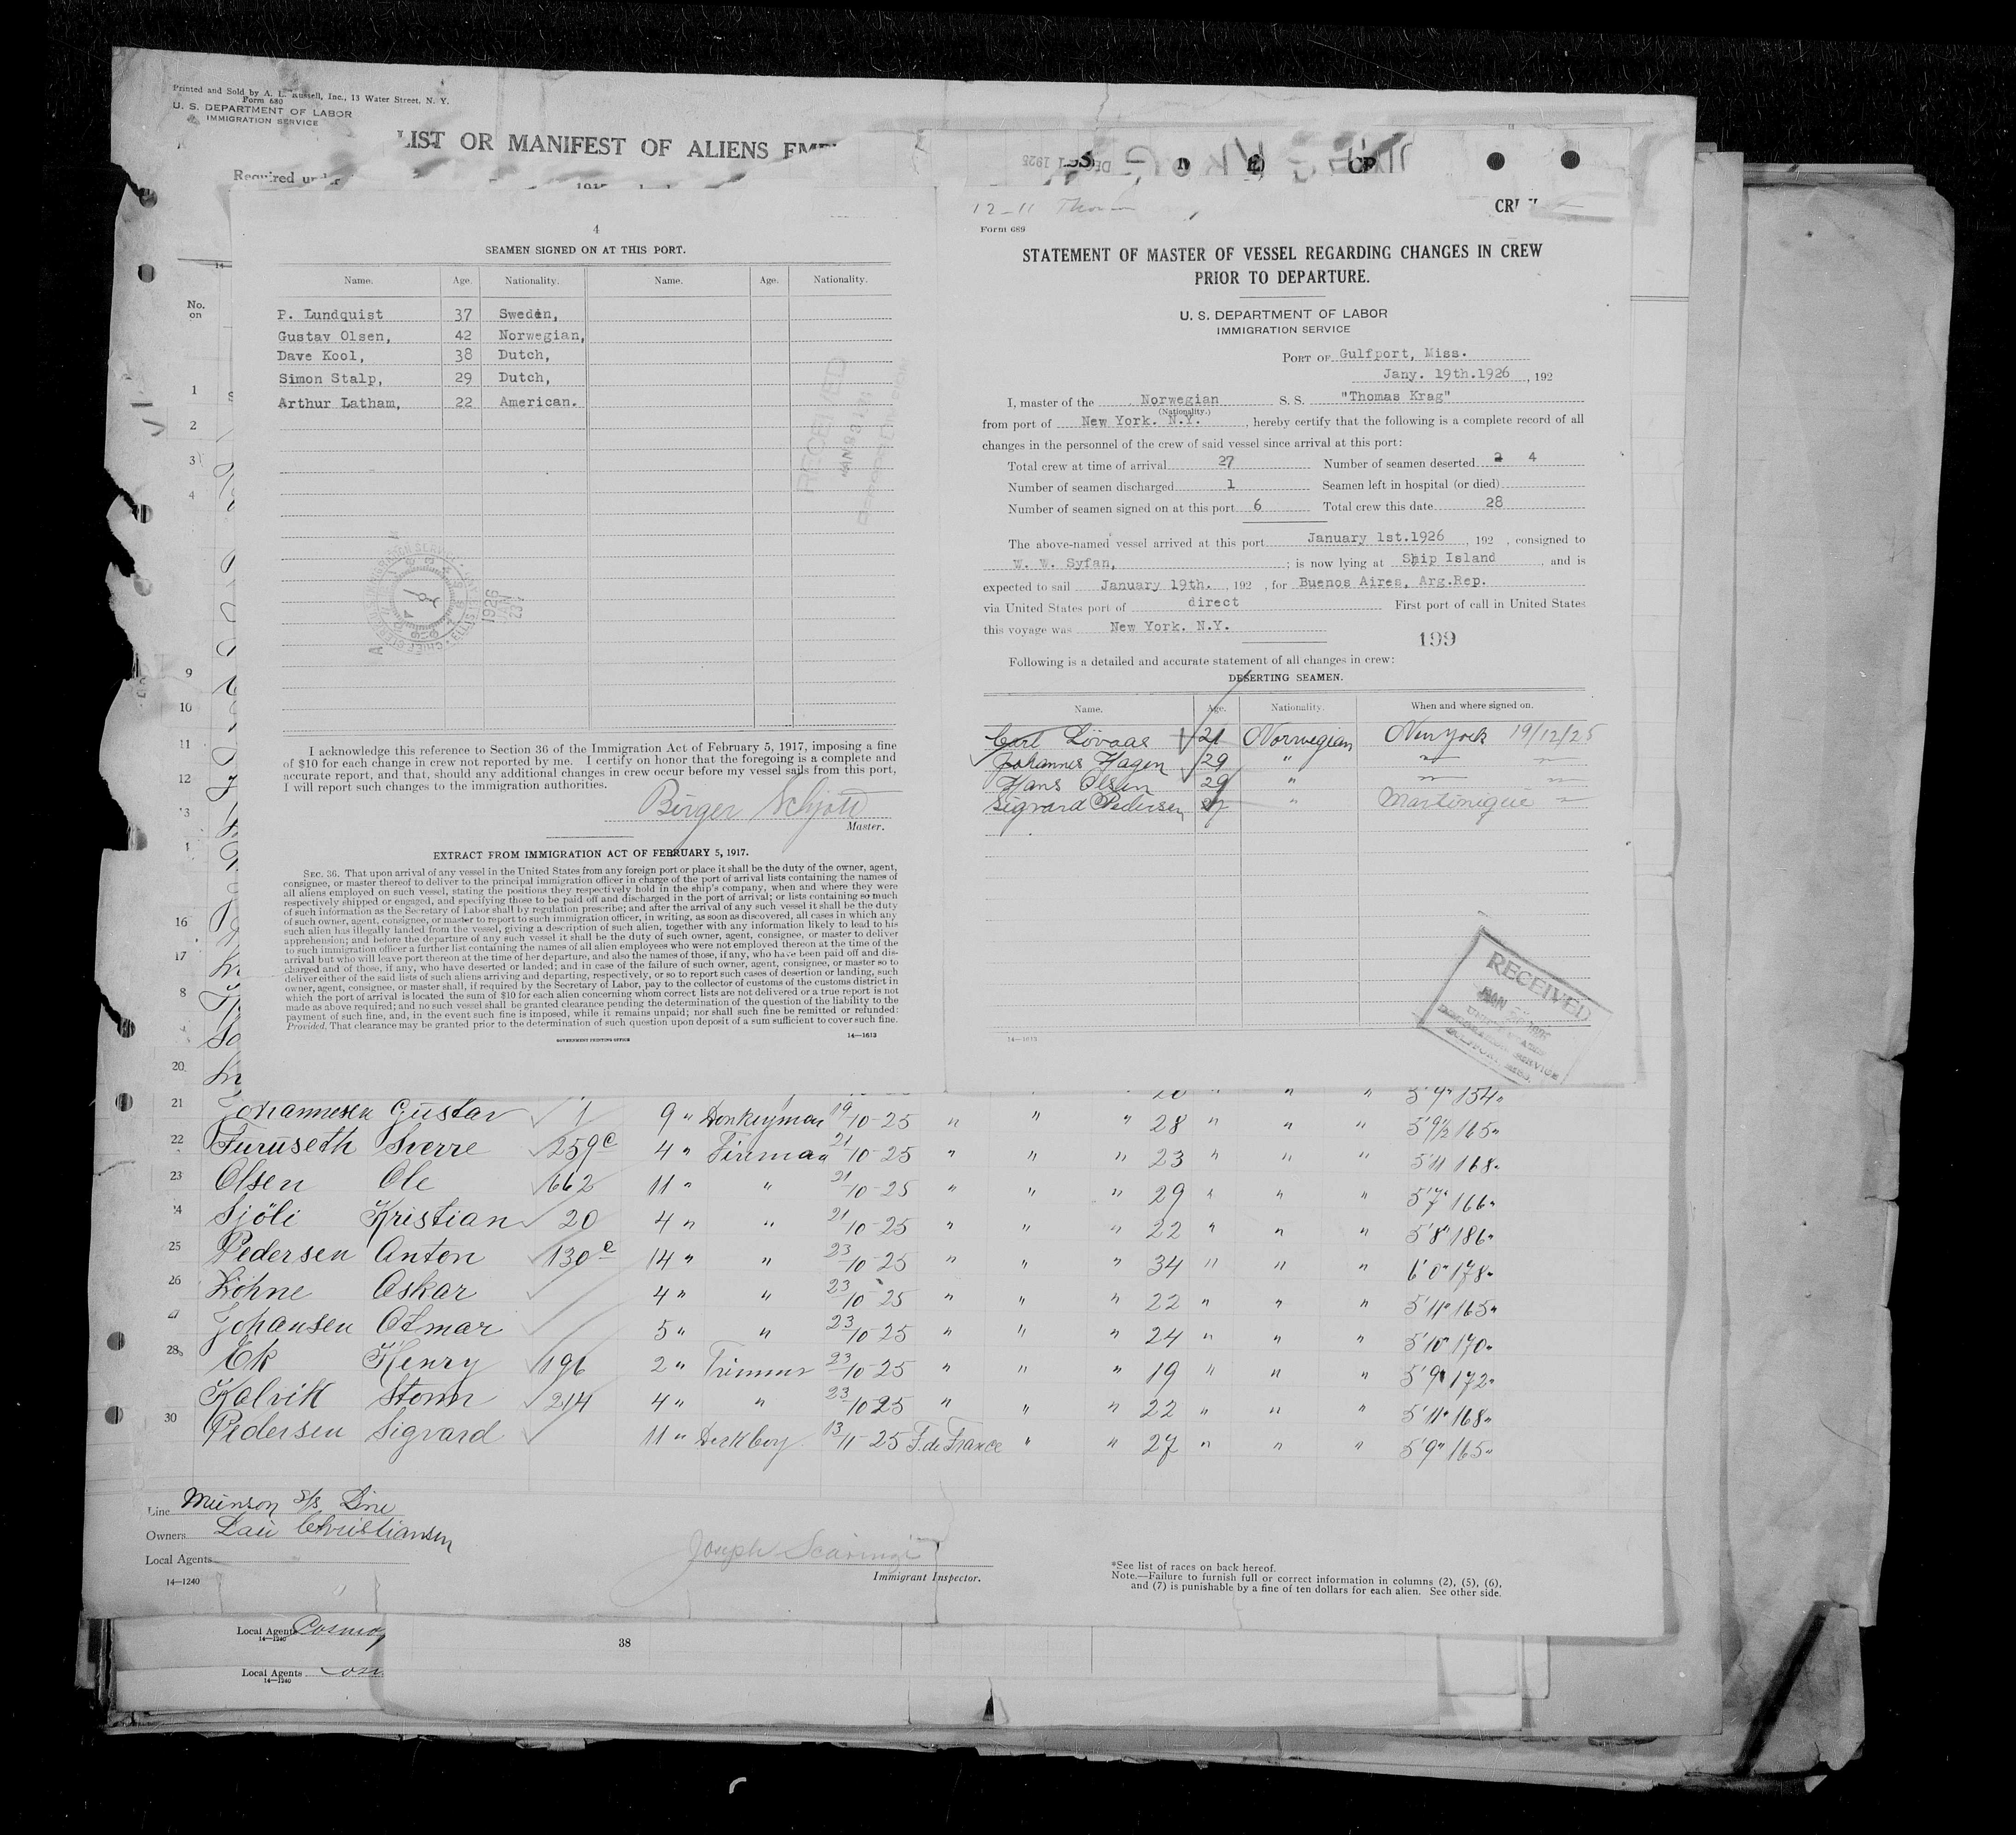 Printed and Sold by A. L. Russell, Inc., 13 Water Street, N. Y.
Form 680
U. S. DEPARTMENT OF LABOR
IMMIGRATION SERVICE
LIST OR MANIFEST OF ALIENS
Required under
No.
on
4
SEAMEN SIGNED ON AT THIS PORT.
Name. Age. Nationality. Name. Age. Nationality.
P. Lundquist 37 Sweden,
Gustav Olsen, 42 Norwegian,
Dave Kool, 38 Dutch,
Simon Stalp, 29 Dutch,
Arthur Latham, 22 American.
RECEIVED
I acknowledge this reference to Section 36 of the Immigration Act of February 5, 1917, imposing a fine
of $10 for each change in crew not reported by me. I certify on honor that the foregoing is a complete and
accurate report, and that, should any additional changes in crew occur before my vessel sails from this port,
I will report such changes to the immigration authorities.
Birger Schjött
Master.
EXTRACT FROM IMMIGRATION ACT OF FEBRUARY 5, 1917.
SEC. 36. That upon arrival of any vessel in the United States from any foreign port or place it shall be the duty of the owner, agent,
consignee, or master thereof to deliver to the principal immigration officer in charge of the port of arrival lists containing the names of
all aliens employed on such vessel, stating the positions they respectively hold in the ship's company, when and where they were
respectively shipped or engaged, and specifying those to be paid off and discharged in the port of arrival; or lists containing so much
of such information as the Secretary of Labor shall by regulation prescribe; and after the arrival of any such vessel it shall be the duty
of such owner, agent, consignee, or master to report to such immigration officer, in writing, as soon as discovered, all cases in which any
such alien has illegally landed from the vessel, giving a description of such alien, together with any information likely to lead to his
apprehension; and before the departure of any such vessel it shall be the duty of such owner, agent, consignee, or master to deliver
to such immigration officer a further list containing the names of all alien employees who were not employed thereon at the time of the
arrival but who will leave port thereon at the time of her departure, and also the names of those, if any, who have been paid off and dis-
charged and of those, if any, who have deserted or landed; and in case of the failure of such owner, agent, consignee, or master so to
deliver either of the said lists of such aliens arriving and departing, respectively, or so to report such cases of desertion or landing, such
owner, agent, consignee, or master shall, if required by the Secretary of Labor, pay to the collector of customs of the customs district in
which the port of arrival is located the sum of $10 for each alien concerning whom correct lists are not delivered or a true report is not
made as above required; and no such vessel shall be granted clearance pending the determination of the question of the liability to the
payment of such fine, and, in the event such fine is imposed, while it remains unpaid; nor shall such fine be remitted or refunded:
Provided, That clearance may be granted prior to the determination of such question upon deposit of a sum sufficient to cover such fine.
GOVERNMENT PRINTING OFFICE 14—1613
DEC 1925
12-11
Form 689
STATEMENT OF MASTER OF VESSEL REGARDING CHANGES IN CREW
PRIOR TO DEPARTURE.
U. S. DEPARTMENT OF LABOR
IMMIGRATION SERVICE
PORT OF Gulfport, Miss.
Jany. 19th.1926 , 192
I, master of the Norwegian S. S. "Thomas Krag"
(Nationality.)
from port of New York. N.Y. , hereby certify that the following is a complete record of all
changes in the personnel of the crew of said vessel since arrival at this port:
Total crew at time of arrival 27 Number of seamen deserted 2 4
Number of seamen discharged 1 Seamen left in hospital (or died)
Number of seamen signed on at this port 6 Total crew this date 28
The above-named vessel arrived at this port January 1st.1926 , 192 , consigned to
W. W. Syfan, ; is now lying at Ship Island , and is
expected to sail January 19th. , 192 , for Buenos Aires, Arg.Rep.
via United States port of direct First port of call in United States
this voyage was New York. N.Y.
199
Following is a detailed and accurate statement of all changes in crew:
DESERTING SEAMEN.
Name. Age. Nationality. When and where signed on.
Carl Lövaas 21 Norwegian New York 19/12/25
Johannes Hagen 29 " " "
Hans Olsen 29 " " "
Sigvard Pedersen 27 " Martinique "
RECEIVED
14—1613
1
2
3
4
9
10
11
12
13
16
17
8
20
20 " " " 5'9" 154"
21 Johannesen Gustav 1 9 " Donkeyman 19/10-25 " " " 28 " " " 5'9½ 165"
22 Furuseth Sverre 259c 4 " Fireman 21/10-25 " " " 23 " " " 5'11 168"
23 Olsen Ole 662 11 " " 21/10-25 " " " 29 " " " 5'7" 166"
24 Sjöli Kristian 20 4 " " 21/10-25 " " " 22 " " " 5'8" 186"
25 Pedersen Anton 130c 14 " " 23/10-25 " " " 34 " " " 6'0" 178"
26 Löhne Oskar 4 " " 23/10-25 " " " 22 " " " 5'11" 165"
27 Johansen Otmar 5 " " 23/10-25 " " " 24 " " " 5'10" 170"
28 Ek Henry 196 2 " Trimmer 23/10-25 " " " 19 " " " 5'9" 172"
Kalvik Storm 214 4 " " 23/10-25 " " " 22 " " " 5'11" 168"
30 Pedersen Sigvard 11 " Deckboy 13/11-25 F. de France " " 27 " " " 5'9" 165"
Line Munson S/S Line
Owners Lau Christiansen
Local Agents
14—1240
Joseph Scaringi
Immigrant Inspector.
*See list of races on back hereof.
Note.—Failure to furnish full or correct information in columns (2), (5), (6),
and (7) is punishable by a fine of ten dollars for each alien. See other side.
Local Agents
14—1240
38
Local Agents
14—1240